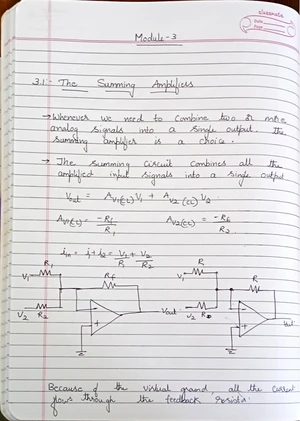 classmate
Date
Page
Module-3
3.1:- The Summing Amplifiers
→ Whenever we need to combine two or more
analog signals into a single output. The
summing amplifier is a choice.
→ The summing circuit combines all the
amplified input signals into a single output
Vout = Av1(CL) V1 + Av2(CL) V2
Av1(CL) = -Rf/R1 Av2(CL) = -Rf/R2
= i1+i2 = V1/R1 + V2/R2
R1 Rf R R
V1 V1
V2 R2 Vout V2 Vout
Because of the virtual ground, all the current
flows through the feedback resistor.